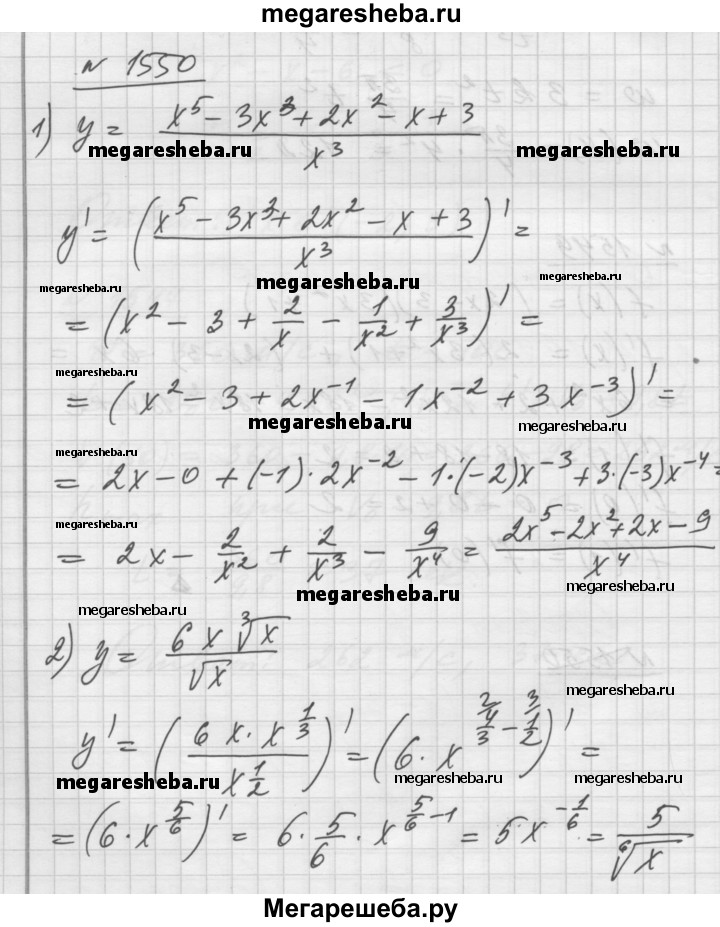 megaresheba.ru
№ 1550
1) y = (x^5 − 3x^3 + 2x^2 − x + 3)/x^3
megaresheba.ru megaresheba.ru
y' = ((x^5 − 3x^3 + 2x^2 − x + 3)/x^3)' =
megaresheba.ru megaresheba.ru megaresheba.ru
= (x^2 − 3 + 2/x − 1/x^2 + 3/x^3)' =
megaresheba.ru
= (x^2 − 3 + 2x^−1 − 1x^−2 + 3x^−3)' =
megaresheba.ru megaresheba.ru
megaresheba.ru
= 2x − 0 + (−1)·2x^−2 − 1·(−2)x^−3 + 3·(−3)x^−4 =
megaresheba.ru
= 2x − 2/x^2 + 2/x^3 − 9/x^4 = (2x^5 − 2x^2 + 2x − 9)/x^4
megaresheba.ru megaresheba.ru
megaresheba.ru
2) y = (6x ∛x)/√x
megaresheba.ru
y' = ((6x·x^(1/3))/x^(1/2))' = (6·x^(4/3 − 1/2))' =
megaresheba.ru megaresheba.ru megaresheba.ru
= (6·x^(5/6))' = 6·5/6·x^(5/6 − 1) = 5x^(−1/6) = 5/⁶√x
Мегарешеба.ру